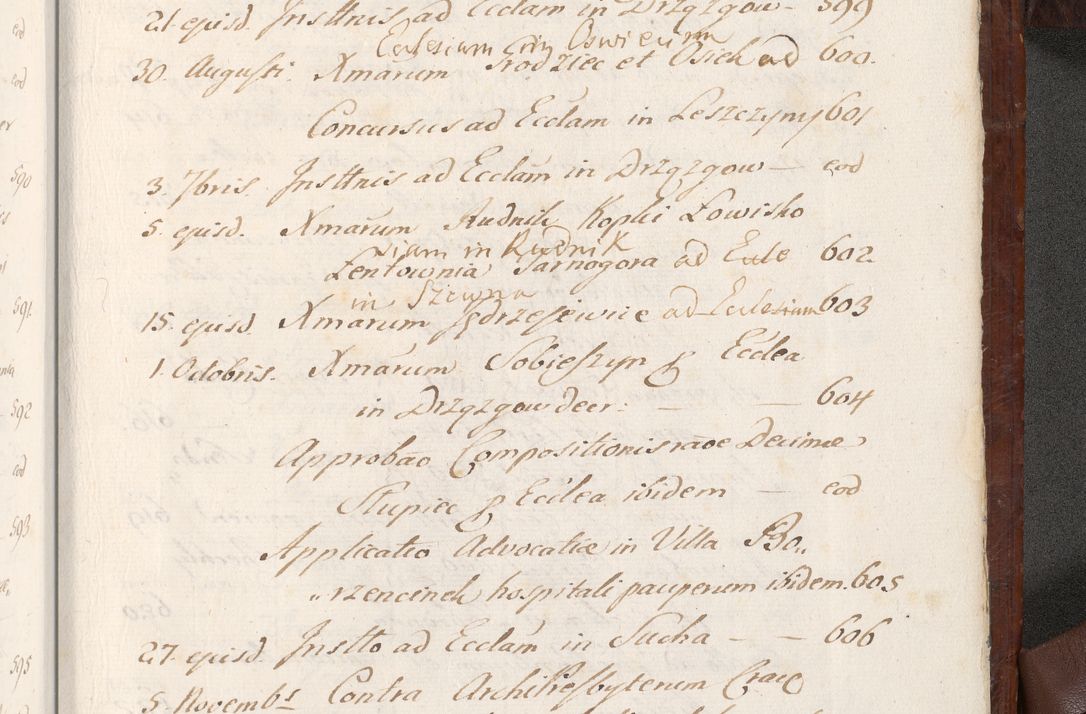 21. ejusd. Insttnis ad Ecclam in Drzązgow - 599
Eccelesiam in Oswiecim
30. Augusti. Xmarum Grodziec et Osiek ad 600.
Concursus ad Ecclam in Leszczyny 601
3. 7bris. Insttnis ad Ecclam in Drzązgow — eod
5. ejusd. Xmarum Rudnik Kopki Łowisko
siam in Rudnik
Łentownia Tarnogora ad Eccle 602.
in Szewna
15. ejusd. Xmarum Jędrzejewice ad Eclesiam 603
1. Octobris. Xmarum Sobieszyn p Ecclea
in Drzązgow deer. — — 604
Approbao Compositionis raoe Decimæ
Słupiec p Ecclea ibidem — eod
Applicatio Advocatiæ in Villa Bo„
„rzencinek hospitali pauperum ibidem. 605
27. ejusd. Instto ad Ecclam in Sucha — — 606
5. Novembs Contra ArchiPresbyterum Crac
590
591
592
eod
593
595